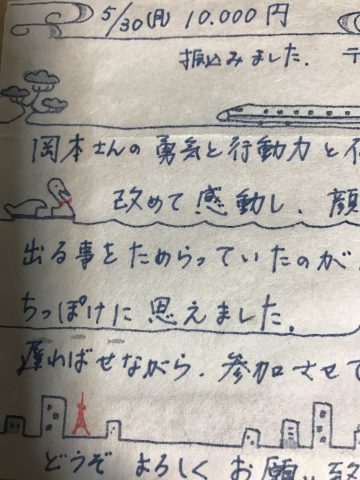 5/30(月) 10.000円
振込みました.
岡本さんの勇気と行動力と
改めて感動し、顔
出る事をためらっていたのが
ちっぽけに思えました.
遅ればせながら、参加させて
どうぞよろしくお願い致